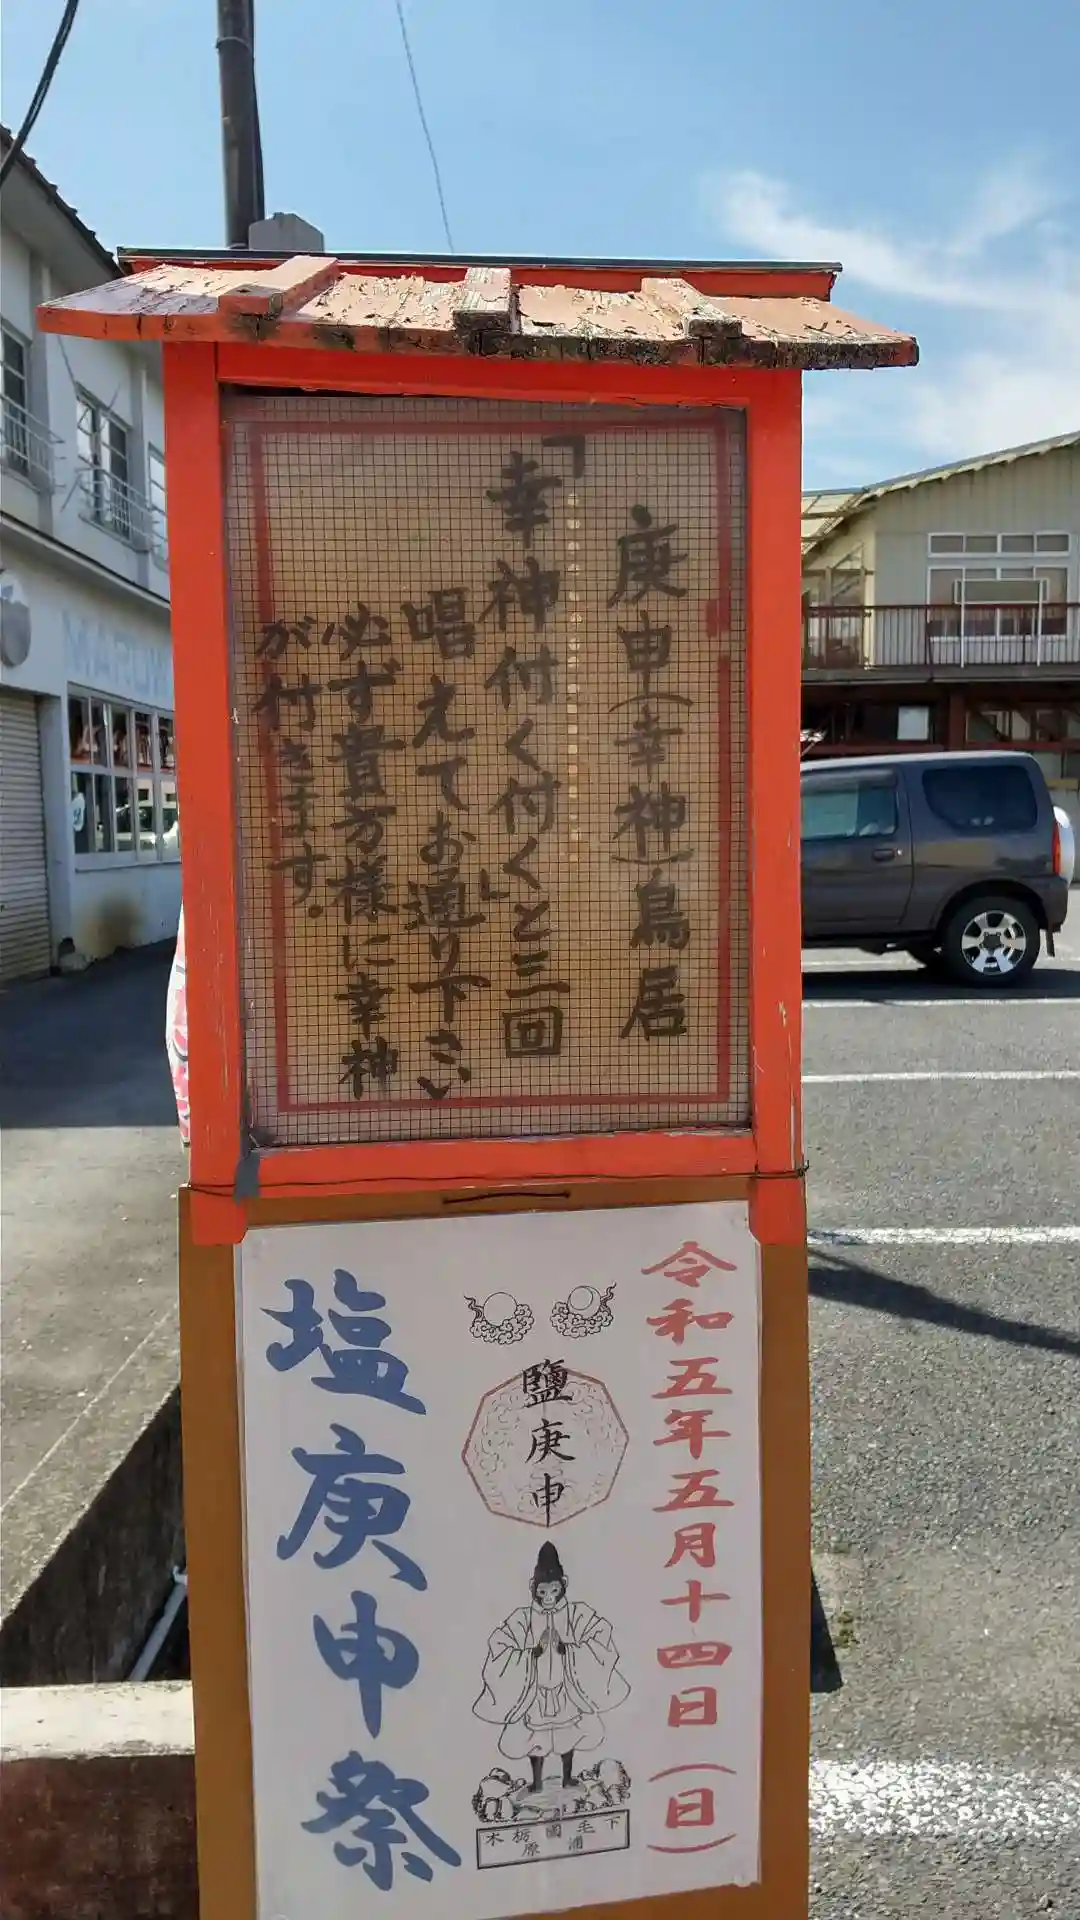 庚申(幸神)鳥居
「幸神付く付く」と三回
唱えてお通り下さい
必ず貴方様に幸神
が付きます。
令和五年五月十四日(日)
鹽庚申
下毛國栃木
浦原
塩庚申祭